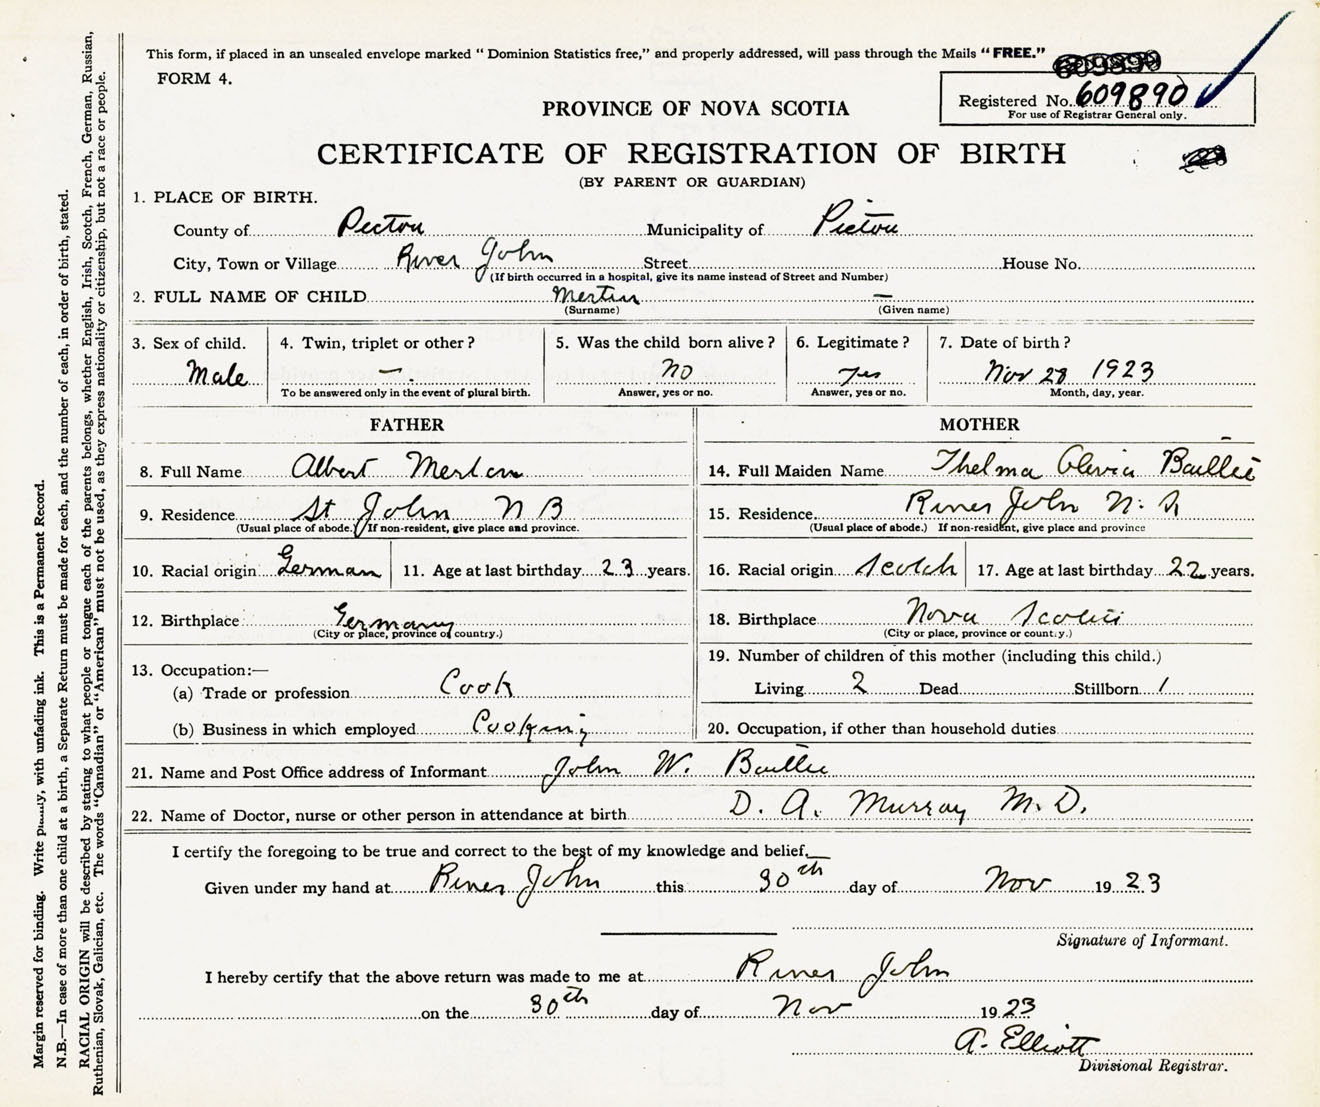 This form, if placed in an unsealed envelope marked "Dominion Statistics free," and properly addressed, will pass through the Mails "FREE."
FORM 4.
Registered No. 609890
For use of Registrar General only.
PROVINCE OF NOVA SCOTIA
CERTIFICATE OF REGISTRATION OF BIRTH
(BY PARENT OR GUARDIAN)
1. PLACE OF BIRTH.
County of Pictou Municipality of Pictou
City, Town or Village River John Street House No.
(If birth occurred in a hospital, give its name instead of Street and Number)
2. FULL NAME OF CHILD Merten —
(Surname) (Given name)
3. Sex of child. 4. Twin, triplet or other? 5. Was the child born alive? 6. Legitimate? 7. Date of birth?
Male — . No yes Nov 28 1923
To be answered only in the event of plural birth. Answer, yes or no. Answer, yes or no. Month, day, year.
FATHER MOTHER
8. Full Name Albert Merten 14. Full Maiden Name Thelma Olevia Baillie
9. Residence St John N B 15. Residence River John N. S
(Usual place of abode.) If non-resident, give place and province. (Usual place of abode.) If non-resident, give place and province
10. Racial origin German 11. Age at last birthday 23 years. 16. Racial origin Scotch 17. Age at last birthday 22 years.
12. Birthplace Germany 18. Birthplace Nova Scotia
(City or place, province or country.) (City or place, province or country.)
13. Occupation:— 19. Number of children of this mother (including this child.)
(a) Trade or profession Cook Living 2 Dead Stillborn 1
(b) Business in which employed Cooking 20. Occupation, if other than household duties
21. Name and Post Office address of Informant John W. Baillie
22. Name of Doctor, nurse or other person in attendance at birth D. A. Murray M. D.
I certify the foregoing to be true and correct to the best of my knowledge and belief.
Given under my hand at River John this 30th day of Nov 1923
Signature of Informant.
I hereby certify that the above return was made to me at River John
on the 30th day of Nov 1923
A. Elliott
Divisional Registrar.
Margin reserved for binding. Write plainly, with unfading ink. This is a Permanent Record.
N.B.—In case of more than one child at a birth, a Separate Return must be made for each, and the number of each, in order of birth, stated.
RACIAL ORIGIN will be described by stating to what people or tongue each of the parents belongs, whether English, Irish, Scotch, French, German, Russian,
Ruthenian, Slovak, Galician, etc. The words "Canadian" or "American" must not be used, as they express nationality or citizenship, but not a race or people.